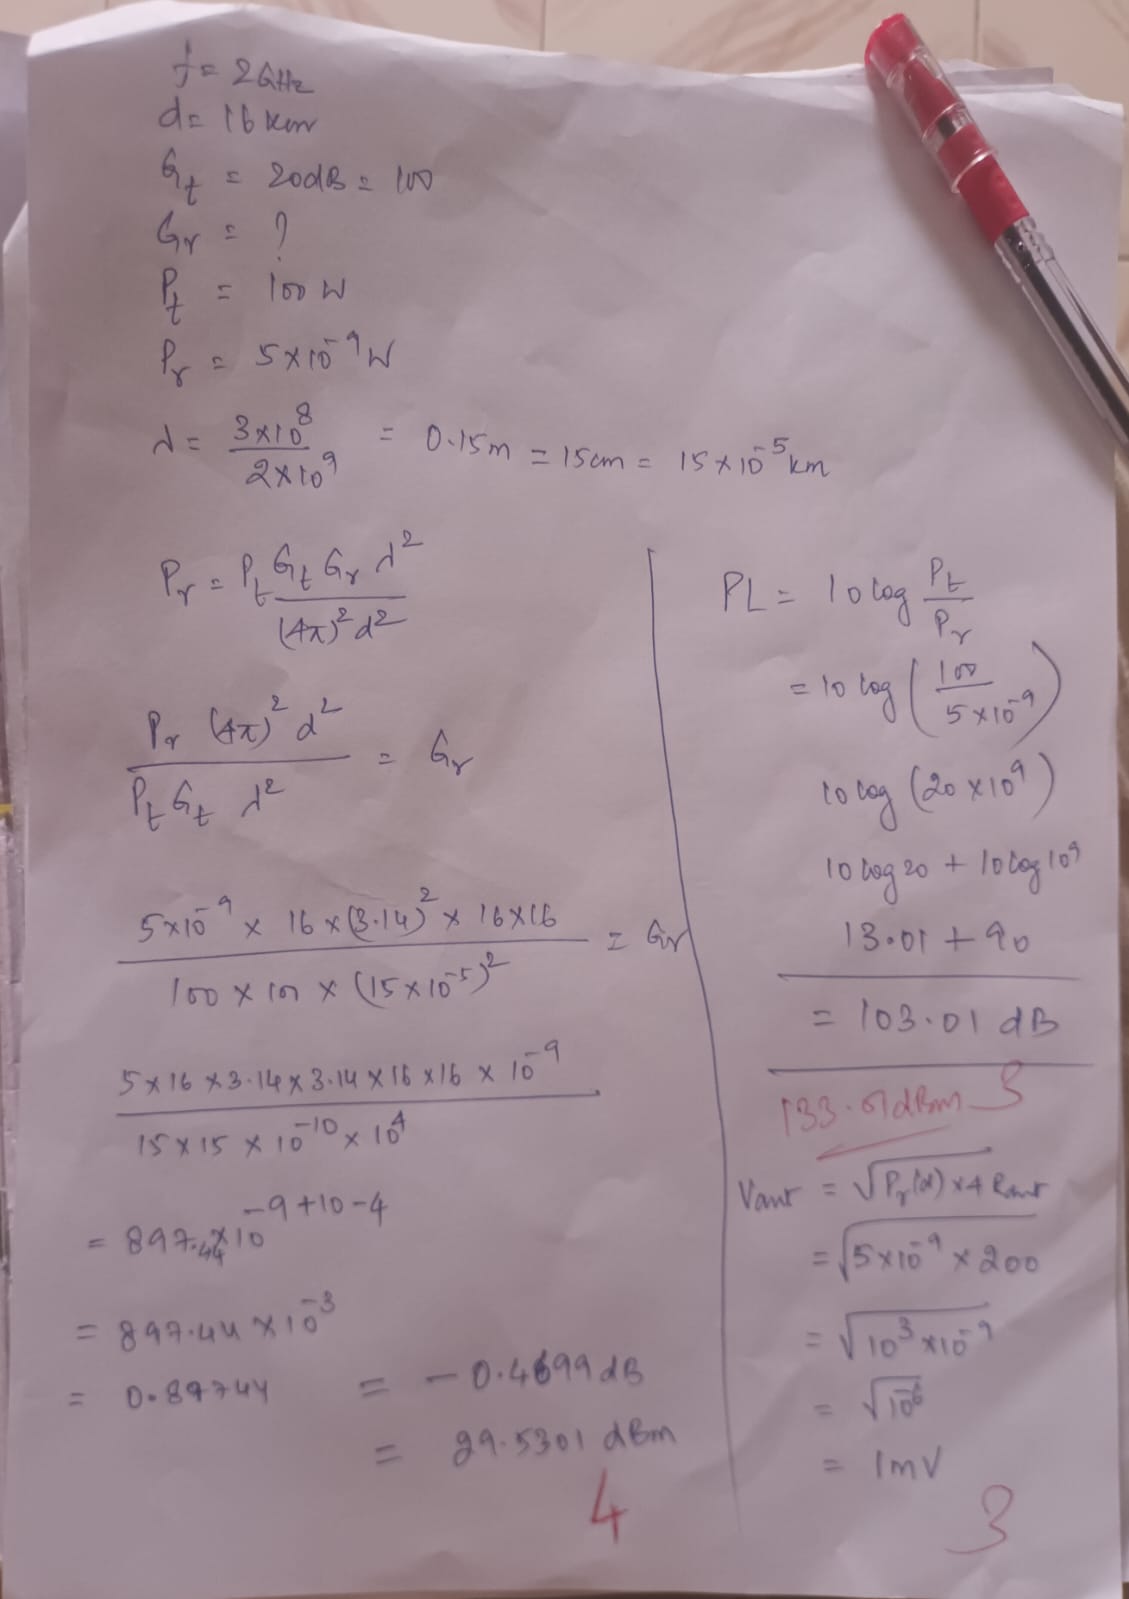 f = 2 GHz
d = 16 km
Gt = 20dB = 100
Gr = ?
Pt = 100 W
Pr = 5×10⁻⁹ W
λ = 3×10⁸ / 2×10⁹ = 0.15m = 15cm = 15×10⁻⁵ km
Pr = Pt Gt Gr λ² / (4π)² d²
Pr (4π)² d² / Pt Gt λ² = Gr
5×10⁻⁹ × 16 × (3.14)² × 16×16 / 100 × 100 × (15×10⁻⁵)² = Gr
5×16×3.14×3.14×16×16×10⁻⁹ / 15×15×10⁻¹⁰×10⁴
= 897.44×10⁻⁹⁺¹⁰⁻⁴
= 897.44×10⁻³
= 0.89744 = -0.4699 dB
= 29.5301 dBm
4
PL = 10 log Pt / Pr
= 10 log (100 / 5×10⁻⁹)
10 log (20×10⁹)
10 log 20 + 10 log 10⁹
13.01 + 90
= 103.01 dB
133.01dBm 3
Vant = √Pr(d) × 4 Rant
= √5×10⁻⁹ × 200
= √10³×10⁻⁹
= √10⁻⁶
= 1mV
3